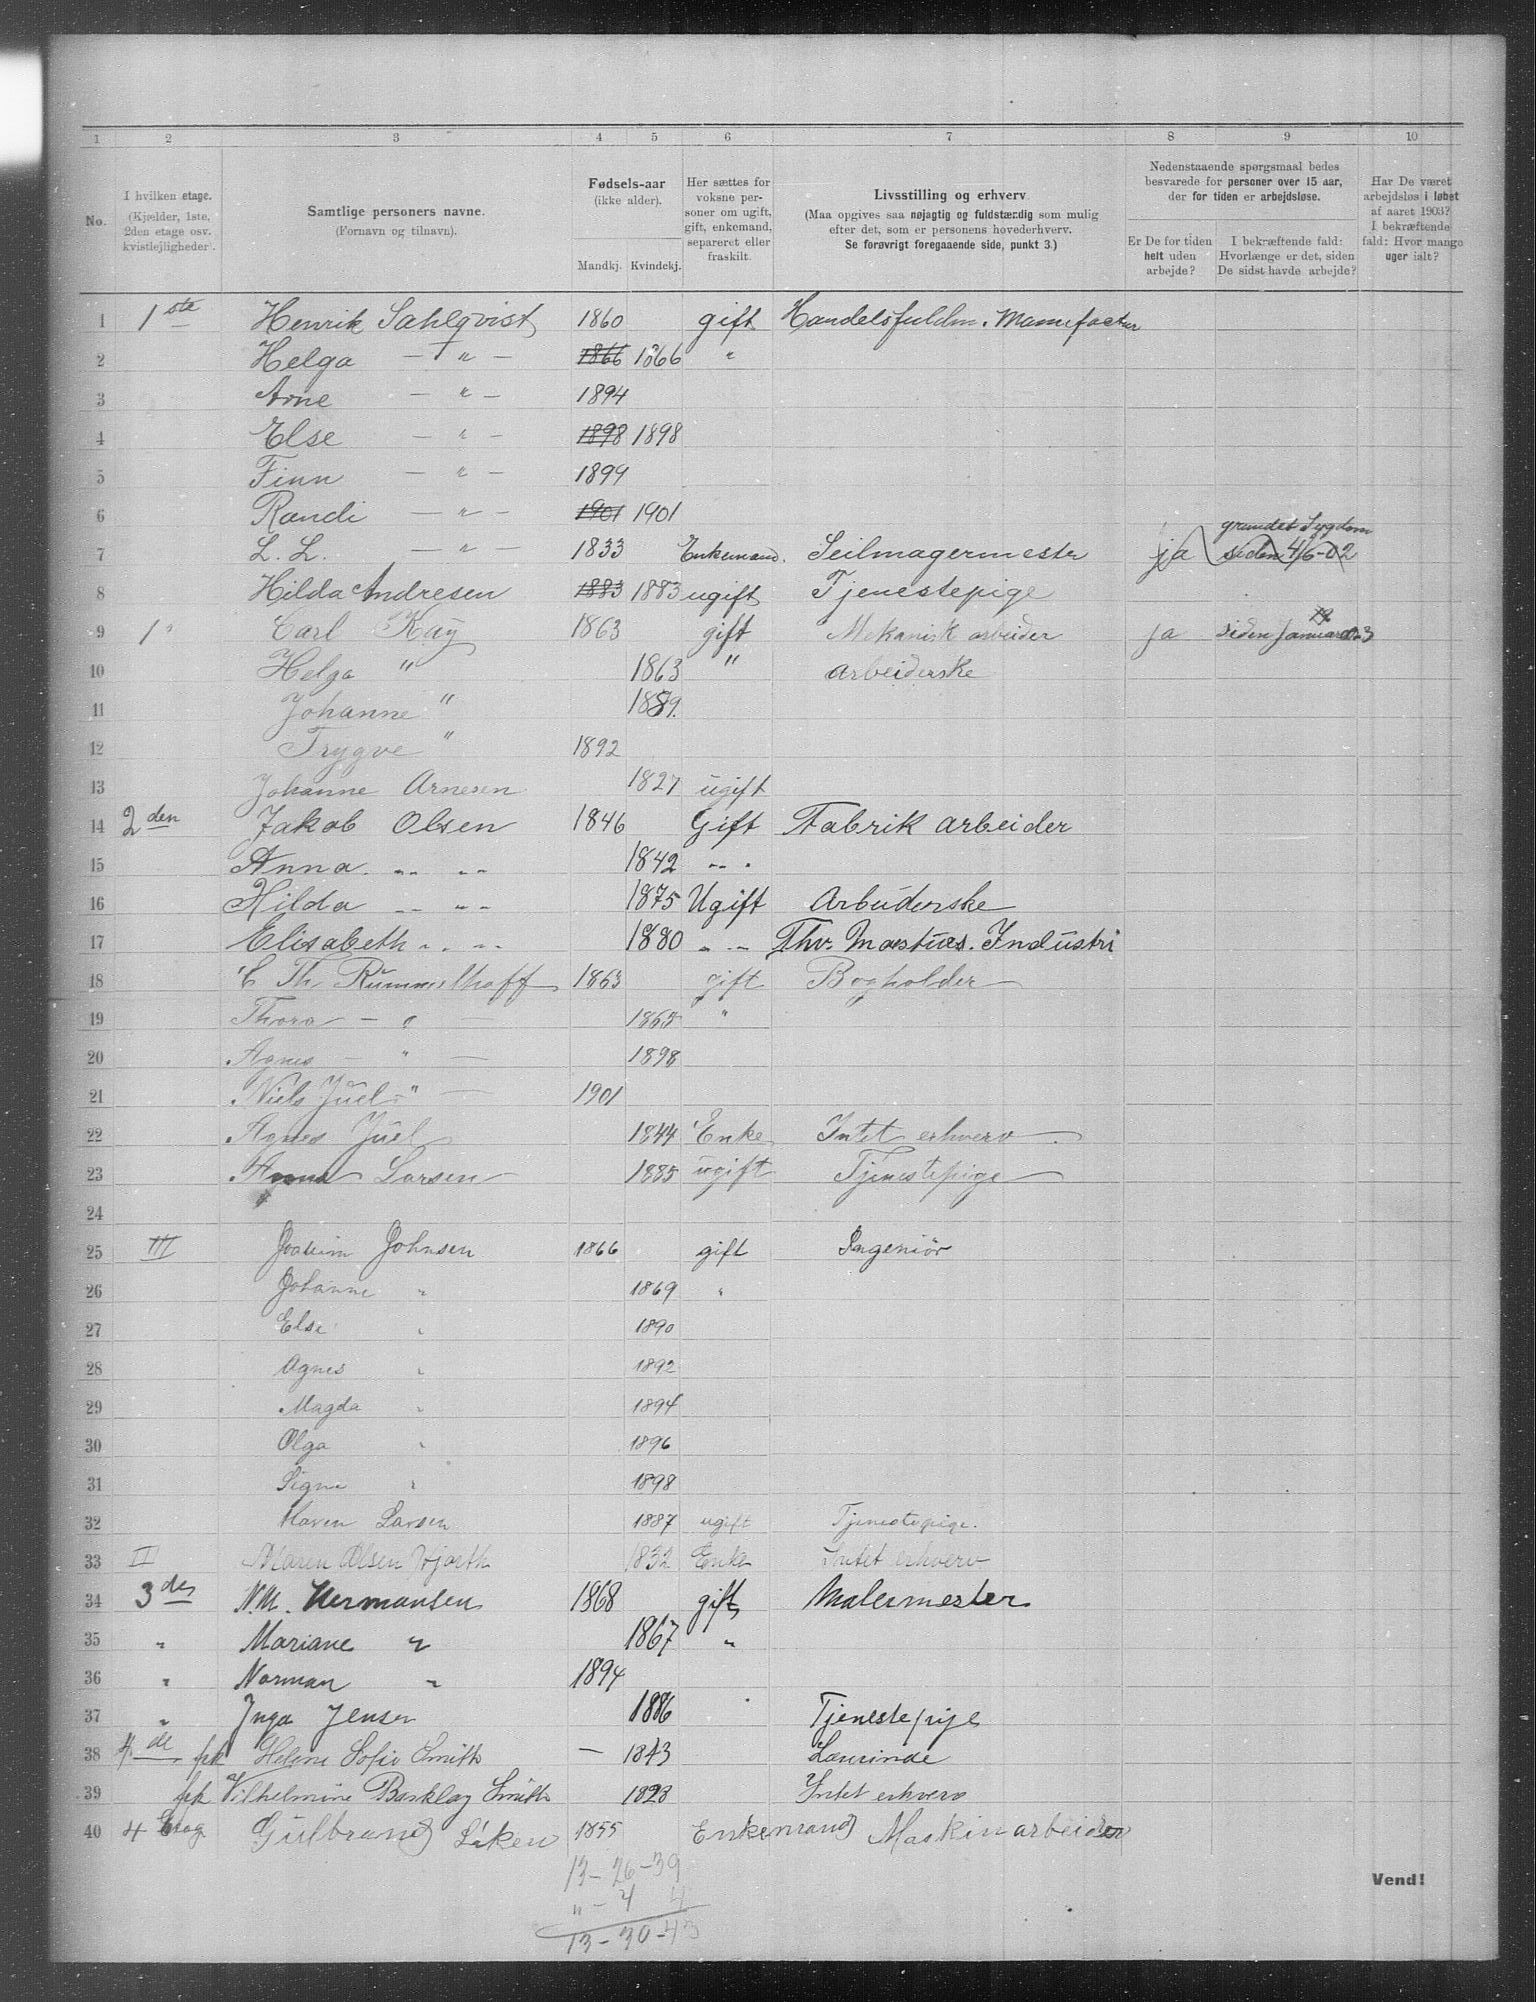 1 2 3 4 5 6 7 8 9 10
No.
I hvilken etage. (Kjælder, 1ste, 2den etage osv. kvistlejligheder).
Samtlige personers navne. (Fornavn og tilnavn).
Fødsels-aar (ikke alder). Mandkj. Kvindekj.
Her sættes for voksne personer om ugift, gift, enkemand, separeret eller fraskilt.
Livsstilling og erhverv (Maa opgives saa nøjagtig og fuldstændig som mulig efter det, som er personens hovederhverv. Se forøvrigt foregaaende side, punkt 3.)
Nedenstaaende spørgsmaal bedes besvarede for personer over 15 aar, der for tiden er arbejdsløse.
Er De for tiden helt uden arbejde?
I bekræftende fald: Hvorlænge er det, siden De sidst havde arbejde?
Har De været arbejdsløs i løbet af aaret 1903? I bekræftende fald: Hvor mange uger ialt?
1 1ste Henrik Sahlqvist 1860 gift Handelsfuldm. Manufactur
2 Helga — " — 1866 1866 "
3 Arne — " — 1894
4 Else — " — 1898 1898
5 Finn — " — 1899
6 Randi — " — 1901 1901
grundet Sygdom
7 L. L. — " — 1833 Enkemand. Seilmagermester ja siden 4/6-02
8 Hilda Andresen 1883 1883 ugift Tjenestepige
9 1" Carl Kay 1863 gift Mekanisk arbeider ja siden Januar 03
10 Helga " 1863 " arbeiderske
11 Johanne " 1889.
12 Trygve " 1892
13 Johanne Arnesen 1827 ugift
14 2den Jakob Olsen 1846 Gift Fabrik arbeider
15 Anna. " " 1842 " "
16 Hilda " " 1875 Ugift Arbeiderske
17 Elisabeth " " 1880 " " Thv. Mæstues. Industri
18 C Th Rummelhoff 1863 gift Bogholder
19 Thora — " — 1865 "
20 Agnes — " — 1898
21 Niels Juel " — 1901
22 Agnes Juel 1844 Enke Intet erhverv.
23 Anna Larsen 1885 ugift Tjenestepige
24
25 III Joakim Johnsen 1866 gift Ingeniör
26 Johanne " 1869 "
27 Else " 1890
28 Agnes " 1892
29 Magda " 1894
30 Olga " 1896
31 Signe " 1898
32 Maren Larsen 1887 ugift Tjenestepige.
33 II Maren Olsen Hjorth 1832 Enke Intet erhverv
34 3die N.M. Hermansen 1868 gift Malermester
35 " Mariane " 1867 "
36 " Norman " 1894
37 " Inga Jensen 1886 Tjenestepige
38 4de frk Helene Sofie Smith — 1843 Lærerinde
39 frk Vilhelmine Barklay Smith 1828 Intet erhverv
40 4 Etag Gulbrand Liken 1855 Enkemand Maskinarbeider
13 — 26 — 39
" — 4 4
13 — 30 — 43
Vend!